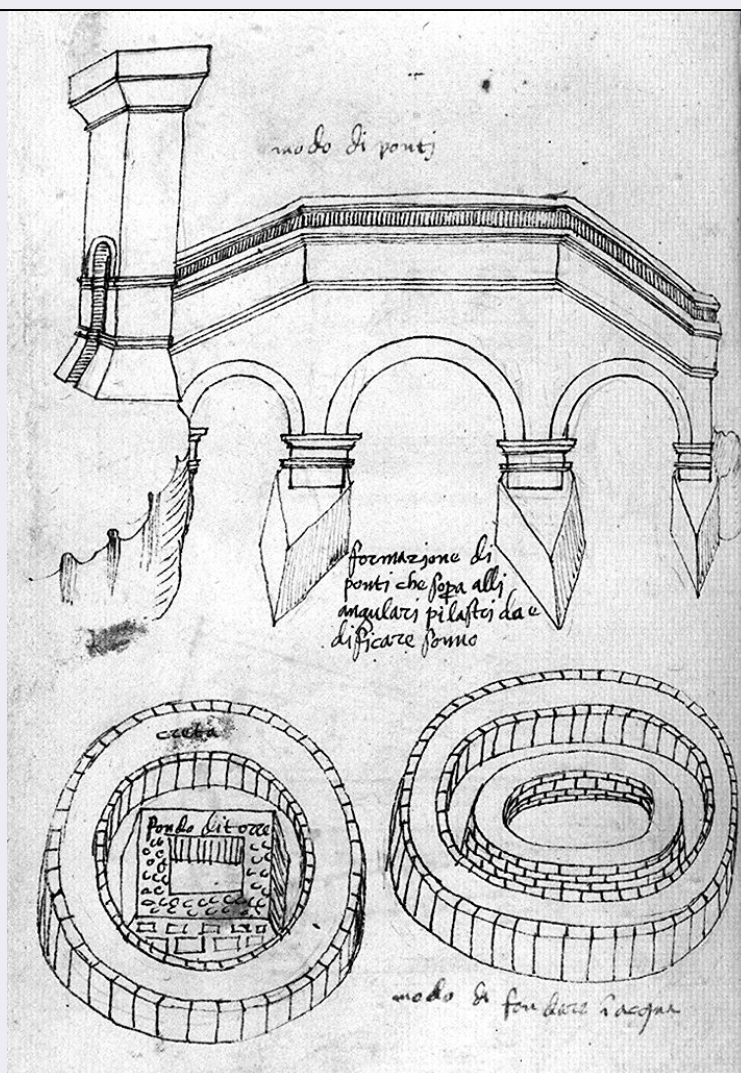 modo di ponti
formazione di
ponti che sopa alli
angulari pilastri da e
dificare sonno
creta
fondo di torre
modo di fondare i acqua